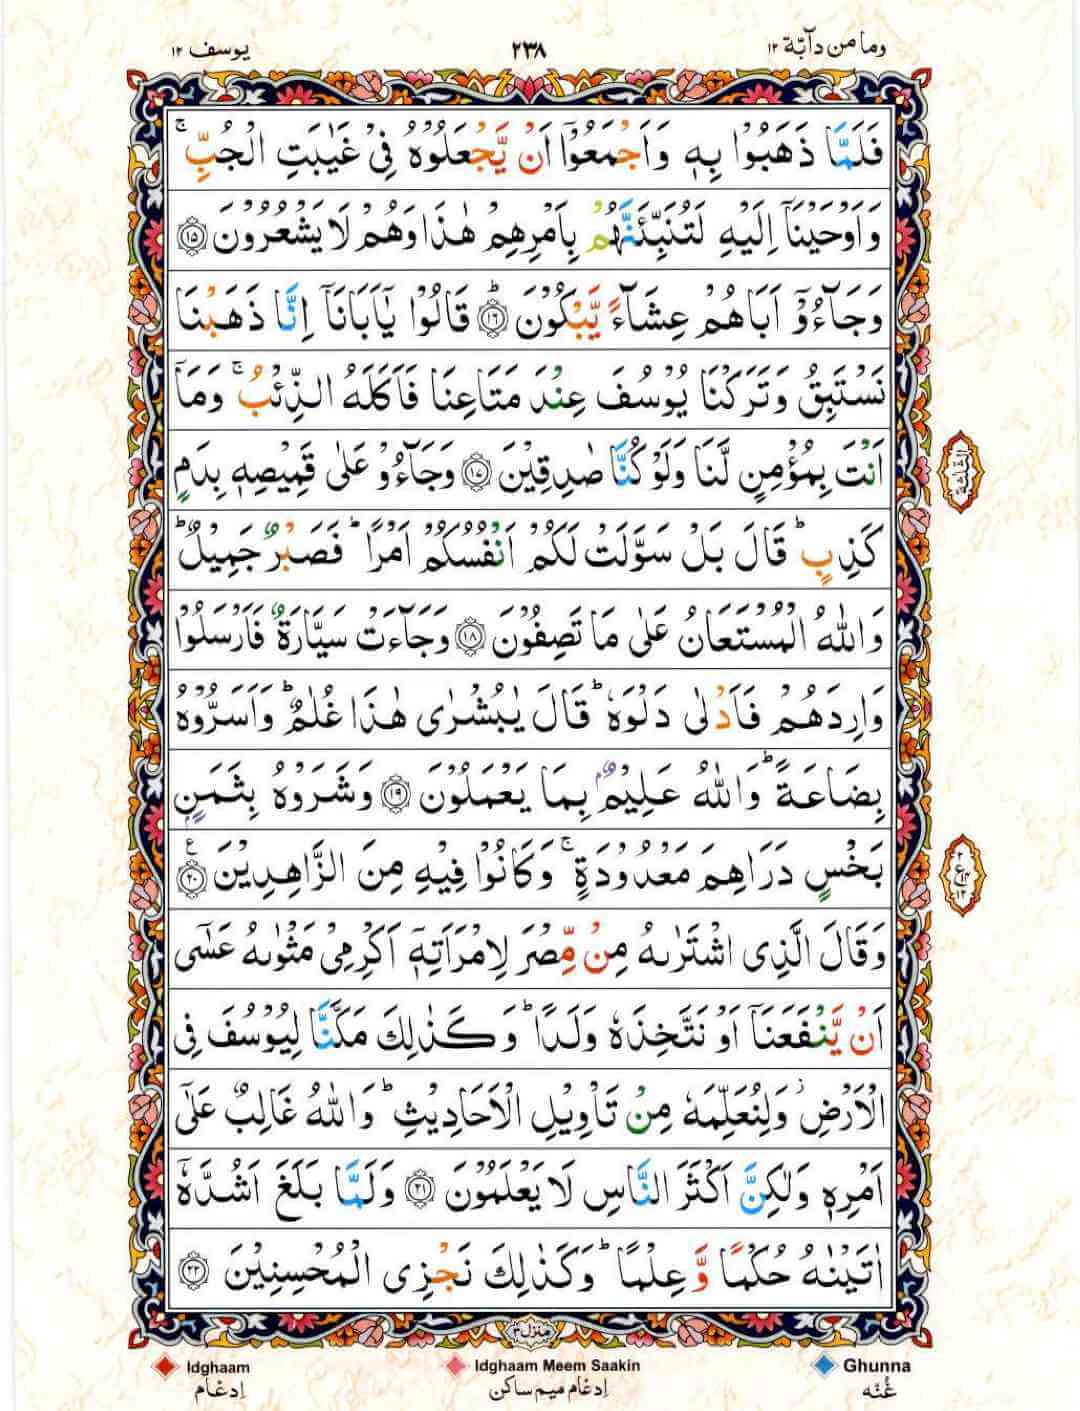 وما من دآبّة ۱۲ ۲۳۸ يوسف ۱۲
فَلَمَّا ذَهَبُوۡا بِهٖ وَاَجۡمَعُوۡۤا اَنۡ يَّجۡعَلُوۡهُ فِىۡ غَيٰبَتِ الۡجُبِّ‌ۚ
وَاَوۡحَيۡنَاۤ اِلَيۡهِ لَتُنَبِّئَنَّهُمۡ بِاَمۡرِهِمۡ هٰذَا وَهُمۡ لَا يَشۡعُرُوۡنَ ﴿۱۵﴾
وَجَآءُوۡۤ اَبَاهُمۡ عِشَآءً يَّبۡكُوۡنَ ﴿۱۶﴾ؕ قَالُوۡا يٰۤاَبَانَاۤ اِنَّا ذَهَبۡنَا
نَسۡتَبِقُ وَتَرَكۡنَا يُوۡسُفَ عِنۡدَ مَتَاعِنَا فَاَكَلَهُ الذِّئۡبُ‌ۚ وَمَاۤ
اَنۡتَ بِمُؤۡمِنٍ لَّنَا وَلَوۡ كُنَّا صٰدِقِيۡنَ ﴿۱۷﴾ وَجَآءُوۡ عَلٰى قَمِيۡصِهٖ بِدَمٍ
كَذِبٍ‌ؕ قَالَ بَلۡ سَوَّلَتۡ لَكُمۡ اَنۡفُسُكُمۡ اَمۡرًا‌ؕ فَصَبۡرٌ جَمِيۡلٌ‌ؕ
وَاللّٰهُ الۡمُسۡتَعَانُ عَلٰى مَا تَصِفُوۡنَ ﴿۱۸﴾ وَجَآءَتۡ سَيَّارَةٌ فَاَرۡسَلُوۡا
وَارِدَهُمۡ فَاَدۡلٰى دَلۡوَهٗ‌ؕ قَالَ يٰبُشۡرٰى هٰذَا غُلٰمٌ‌ؕ وَاَسَرُّوۡهُ
بِضَاعَةً‌ؕ وَاللّٰهُ عَلِيۡمٌۢ بِمَا يَعۡمَلُوۡنَ ﴿۱۹﴾ وَشَرَوۡهُ بِثَمَنٍۢ
بَخۡسٍ دَرَاهِمَ مَعۡدُوۡدَةٍ‌ۚ وَكَانُوۡا فِيۡهِ مِنَ الزَّاهِدِيۡنَ ﴿۲۰﴾ع
وَقَالَ الَّذِى اشۡتَرٰٮهُ مِنۡ مِّصۡرَ لِامۡرَاَتِهٖۤ اَكۡرِمِىۡ مَثۡوٰٮهُ عَسٰٓى
اَنۡ يَّنۡفَعَنَاۤ اَوۡ نَـتَّخِذَهٗ وَلَدًا‌ؕ وَكَذٰلِكَ مَكَّنَّا لِيُوۡسُفَ فِى
الۡاَرۡضِ وَلِنُعَلِّمَهٗ مِنۡ تَاۡوِيۡلِ الۡاَحَادِيۡثِ‌ؕ وَاللّٰهُ غَالِبٌ عَلٰٓى
اَمۡرِهٖ وَلٰكِنَّ اَكۡثَرَ النَّاسِ لَا يَعۡلَمُوۡنَ ﴿۲۱﴾ وَلَمَّا بَلَغَ اَشُدَّهٗۤ
اٰتَيۡنٰهُ حُكۡمًا وَّعِلۡمًا‌ؕ وَكَذٰلِكَ نَجۡزِى الۡمُحۡسِنِيۡنَ ﴿۲۲﴾
منزل ۳
Idghaam Idghaam Meem Saakin Ghunna
اِدغام اِدغام میم ساکن غُنّه